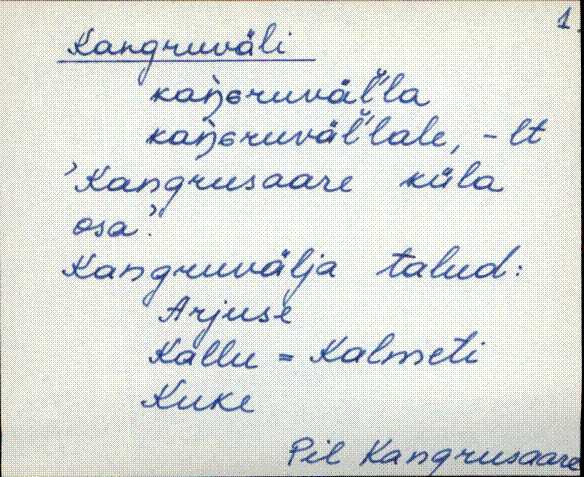 1.
Kangruväli
kaŋ̀ɢruväl̆'la
kaŋ̀ɢruväl̆'lale, -lt
'Kangrusaare küla
osa.'
Kangruvälja talud:
Arjuse
Kallu = Kalmeti
Kuke
Pil Kangrusaare